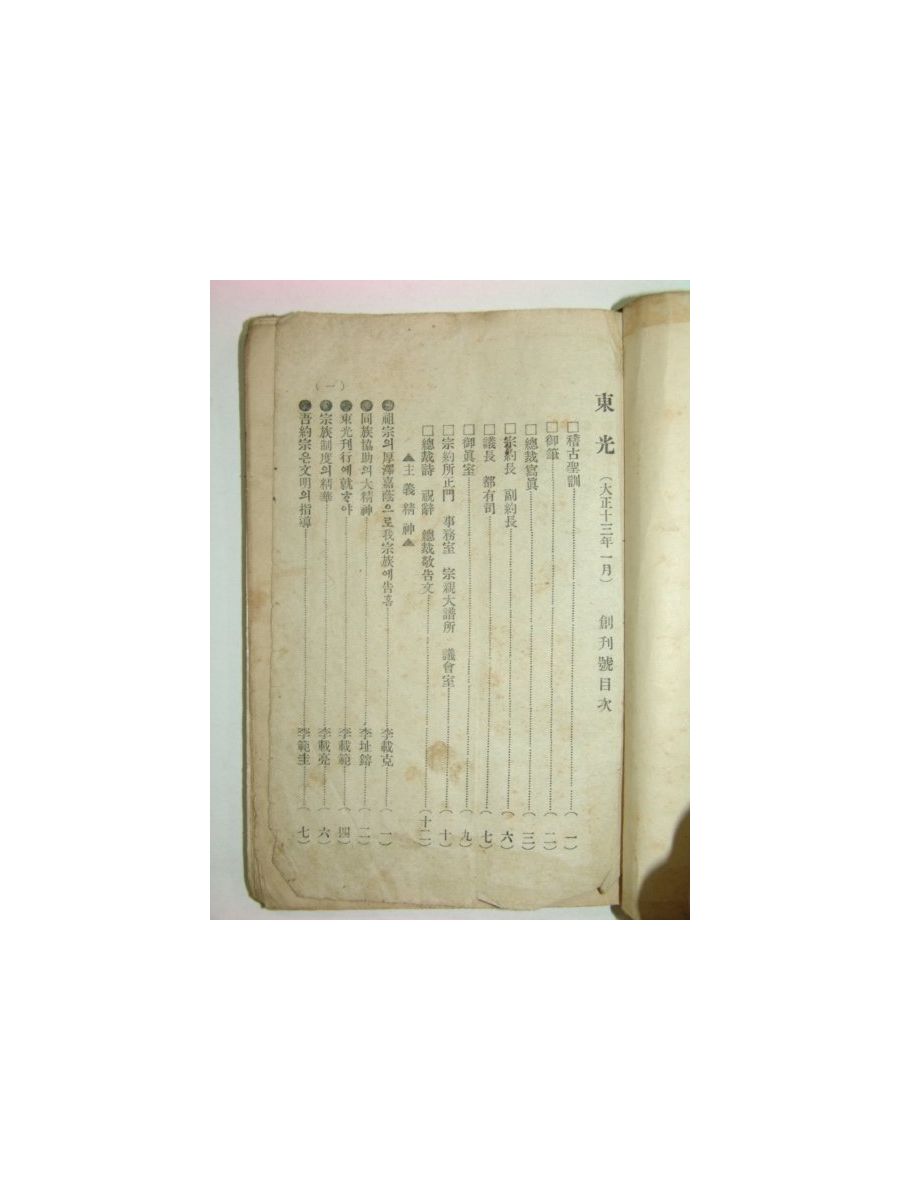 東光 (大正十三年一月) 創刊號目次
□稽古聖訓 (一)
□御筆 (二)
□總裁寫眞 (三)
□宗約長 副約長 (六)
□議長 都有司 (七)
□御眞室 (九)
□宗約所正門 事務室 宗親大譜所 議會室 (十)
□總裁詩 祝辭 總裁敬告文 (十二)
▲主義精神▲
祖宗의厚澤嘉蔭으로我宗族에告홈 李載克 (一)
同族協助의大精神 李址鎔 (二)
東光刊行에就ᄒᆞ야 李載範 (四)
宗族制度의精華 李載亮 (六)
吾約宗은文明의指導 李範圭 (七)
(一)